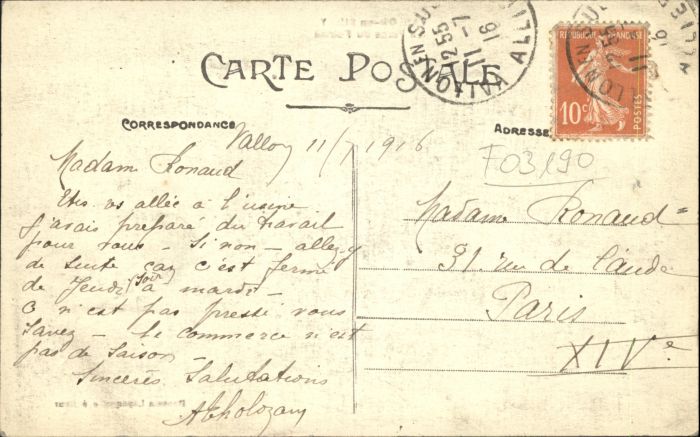 CARTE POSTALE
CORRESPONDANCE
ADRESSE
RÉPUBLIQUE FRANÇAISE
10c
POSTES
ALLIER
12 55
11 - 7
16
F03190
Vallon 11/7 1916
Madame Ronaud
Etes vs allée à l'usine
j'avais preparé du travail
pour vous - Si non - allez y
de suite car c'est fermé
de Jeudi soir à mardi -
C n'est pas pressé vous
savez - le commerce n'est
pas de saison -
Sincères Salutations
Madame Ronaud
31 rue de
Paris
XIVe